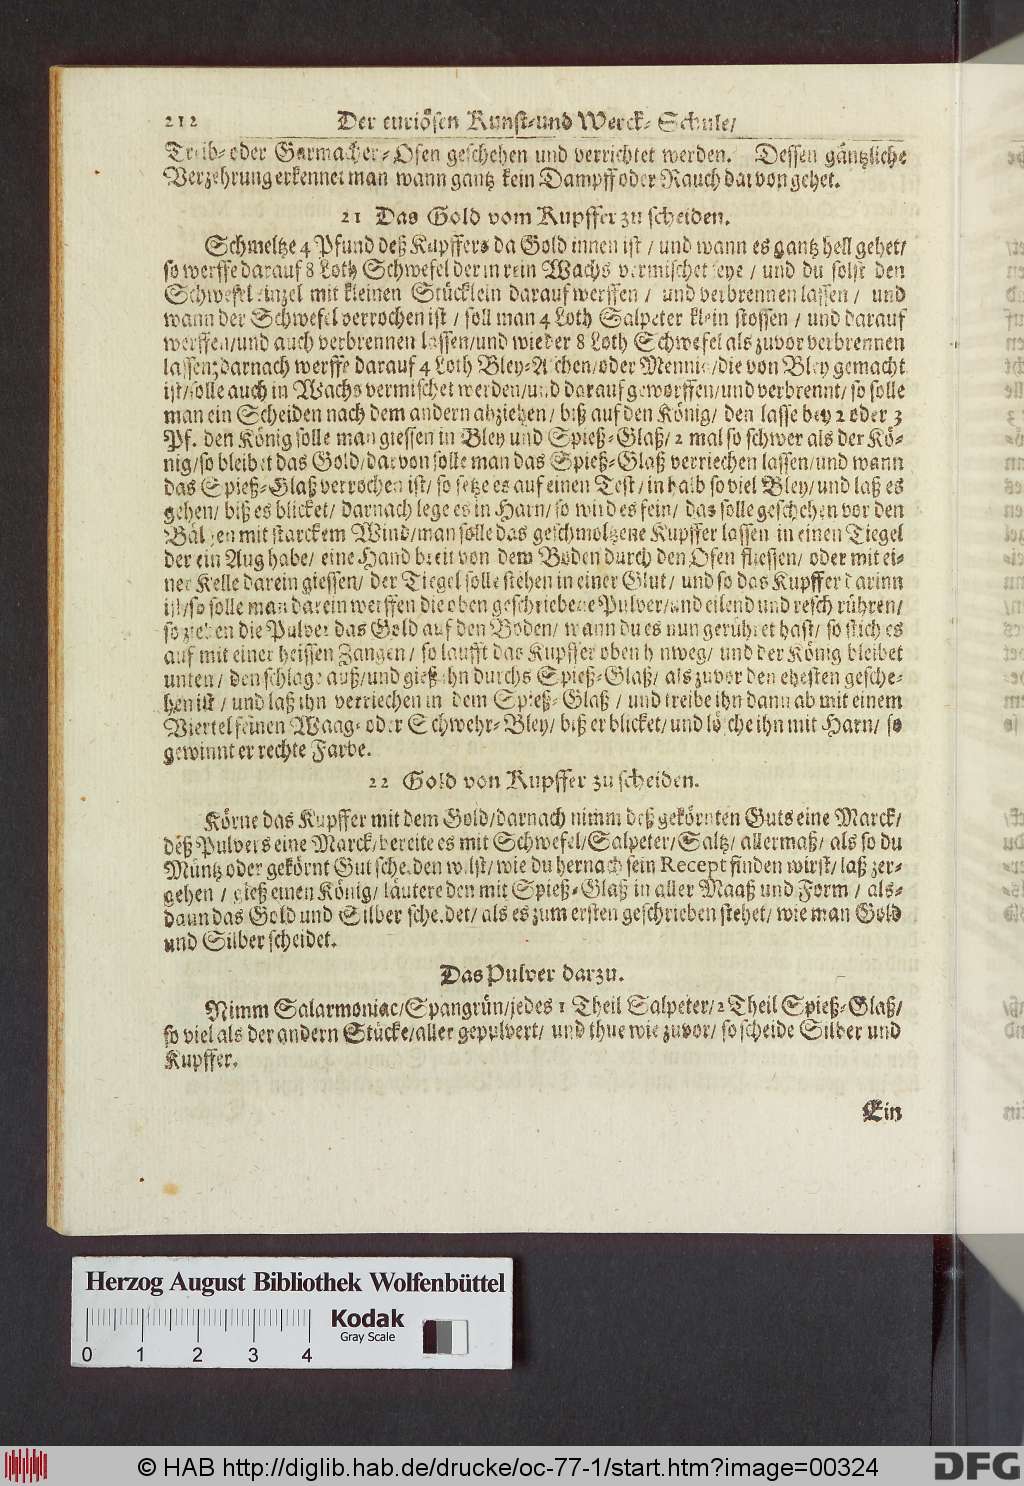 212 Der curiösen Kunst-und Werck-Schule/
Treib-oder Garmacher-Ofen geschehen und verrichtet werden. Dessen gäntzliche
Verzehrung erkennet man wann gantz kein Dampff oder Rauch darvon gehet.
21 Das Gold vom Kupffer zu scheiden.
Schmeltze 4 Pfund deß Kupffers da Gold innen ist / und wann es gantz hell gehet/
so werffe darauf 8 Loth Schwefel der in rein Wachs vermischet seye / und du solst den
Schwefel einzel mit kleinen Stücklein darauf werffen / und verbrennen lassen / und
wann der Schwefel verrochen ist / soll man 4 Loth Salpeter klein stossen / und darauf
werffen/und auch verbrennen lassen/und wieder 8 Loth Schwefel als zuvor verbrennen
lassen; darnach werffe darauf 4 Loth Bley-Aschen/oder Mennie/die von Bley gemacht
ist/solle auch in Wachs vermischet werden/und darauf geworffen/und verbrennt/ so solle
man ein Scheiden nach dem andern abziehen/ biß auf den König/ den lasse bey 2 oder 3
Pf. den König solle man giessen in Bley und Spieß-Glaß/ 2 mal so schwer als der Kö-
nig/so bleibet das Gold/darvon solle man das Spieß-Glaß verriechen lassen/und wann
das Spieß-Glaß verrochen ist/ so setze es auf einen Test/ in halb so viel Bley/ und laß es
gehen/ biß es blicket/ darnach lege es in Harn/ so wird es fein/ das solle geschehen vor den
Bälgen mit starckem Wind/man solle das geschmoltzene Kupffer lassen in einen Tiegel
der ein Aug habe/ eine Hand breit von dem Boden durch den Ofen fliessen/ oder mit ei-
ner Kelle darein giessen/ der Tiegel solle stehen in einer Glut/ und so das Kupffer darinn
ist/so solle man darein werffen die oben geschriebene Pulver/und eilend und resch rühren/
so ziehen die Pulver das Gold auf den Boden/ wann du es nun gerühret hast/ so stich es
auf mit einer heissen Zangen/ so laufft das Kupffer oben hinweg/ und der König bleibet
unten/ den schlage auß/und gieß ihn durchs Spieß-Glaß/ als zuvor den ehesten gesche-
hen ist / und laß ihn verriechen in dem Spieß-Glaß / und treibe ihn dann ab mit einem
Viertel feinen Waag-oder Schwehr-Bley/ biß er blicket/ und lösche ihn mit Harn/ so
gewinnt er rechte Farbe.
22 Gold von Kupffer zu scheiden.
Körne das Kupffer mit dem Gold/darnach nimm deß gekörnten Guts eine Marck/
deß Pulvers eine Marck/bereite es mit Schwefel/Salpeter/Saltz/ allermaß/ als so du
Müntz oder gekörnt Gut scheiden wilst/ wie du hernach sein Recept finden wirst/ laß zer-
gehen / gieß einen König/ läutere den mit Spieß-Glaß in aller Maaß und Form / als-
dann das Gold und Silber scheidet/ als es zum ersten geschrieben stehet/ wie man Gold
und Silber scheidet.
Das Pulver darzu.
Nimm Salarmoniac/Spangrün/jedes 1 Theil Salpeter/2 Theil Spieß-Glaß/
so viel als der andern Stücke/aller gepulvert/ und thue wie zuvor/ so scheide Silber und
Kupffer.
Ein
Herzog August Bibliothek Wolfenbüttel
Kodak
Gray Scale
0 1 2 3 4
© HAB http://diglib.hab.de/drucke/oc-77-1/start.htm?image=00324
DFG